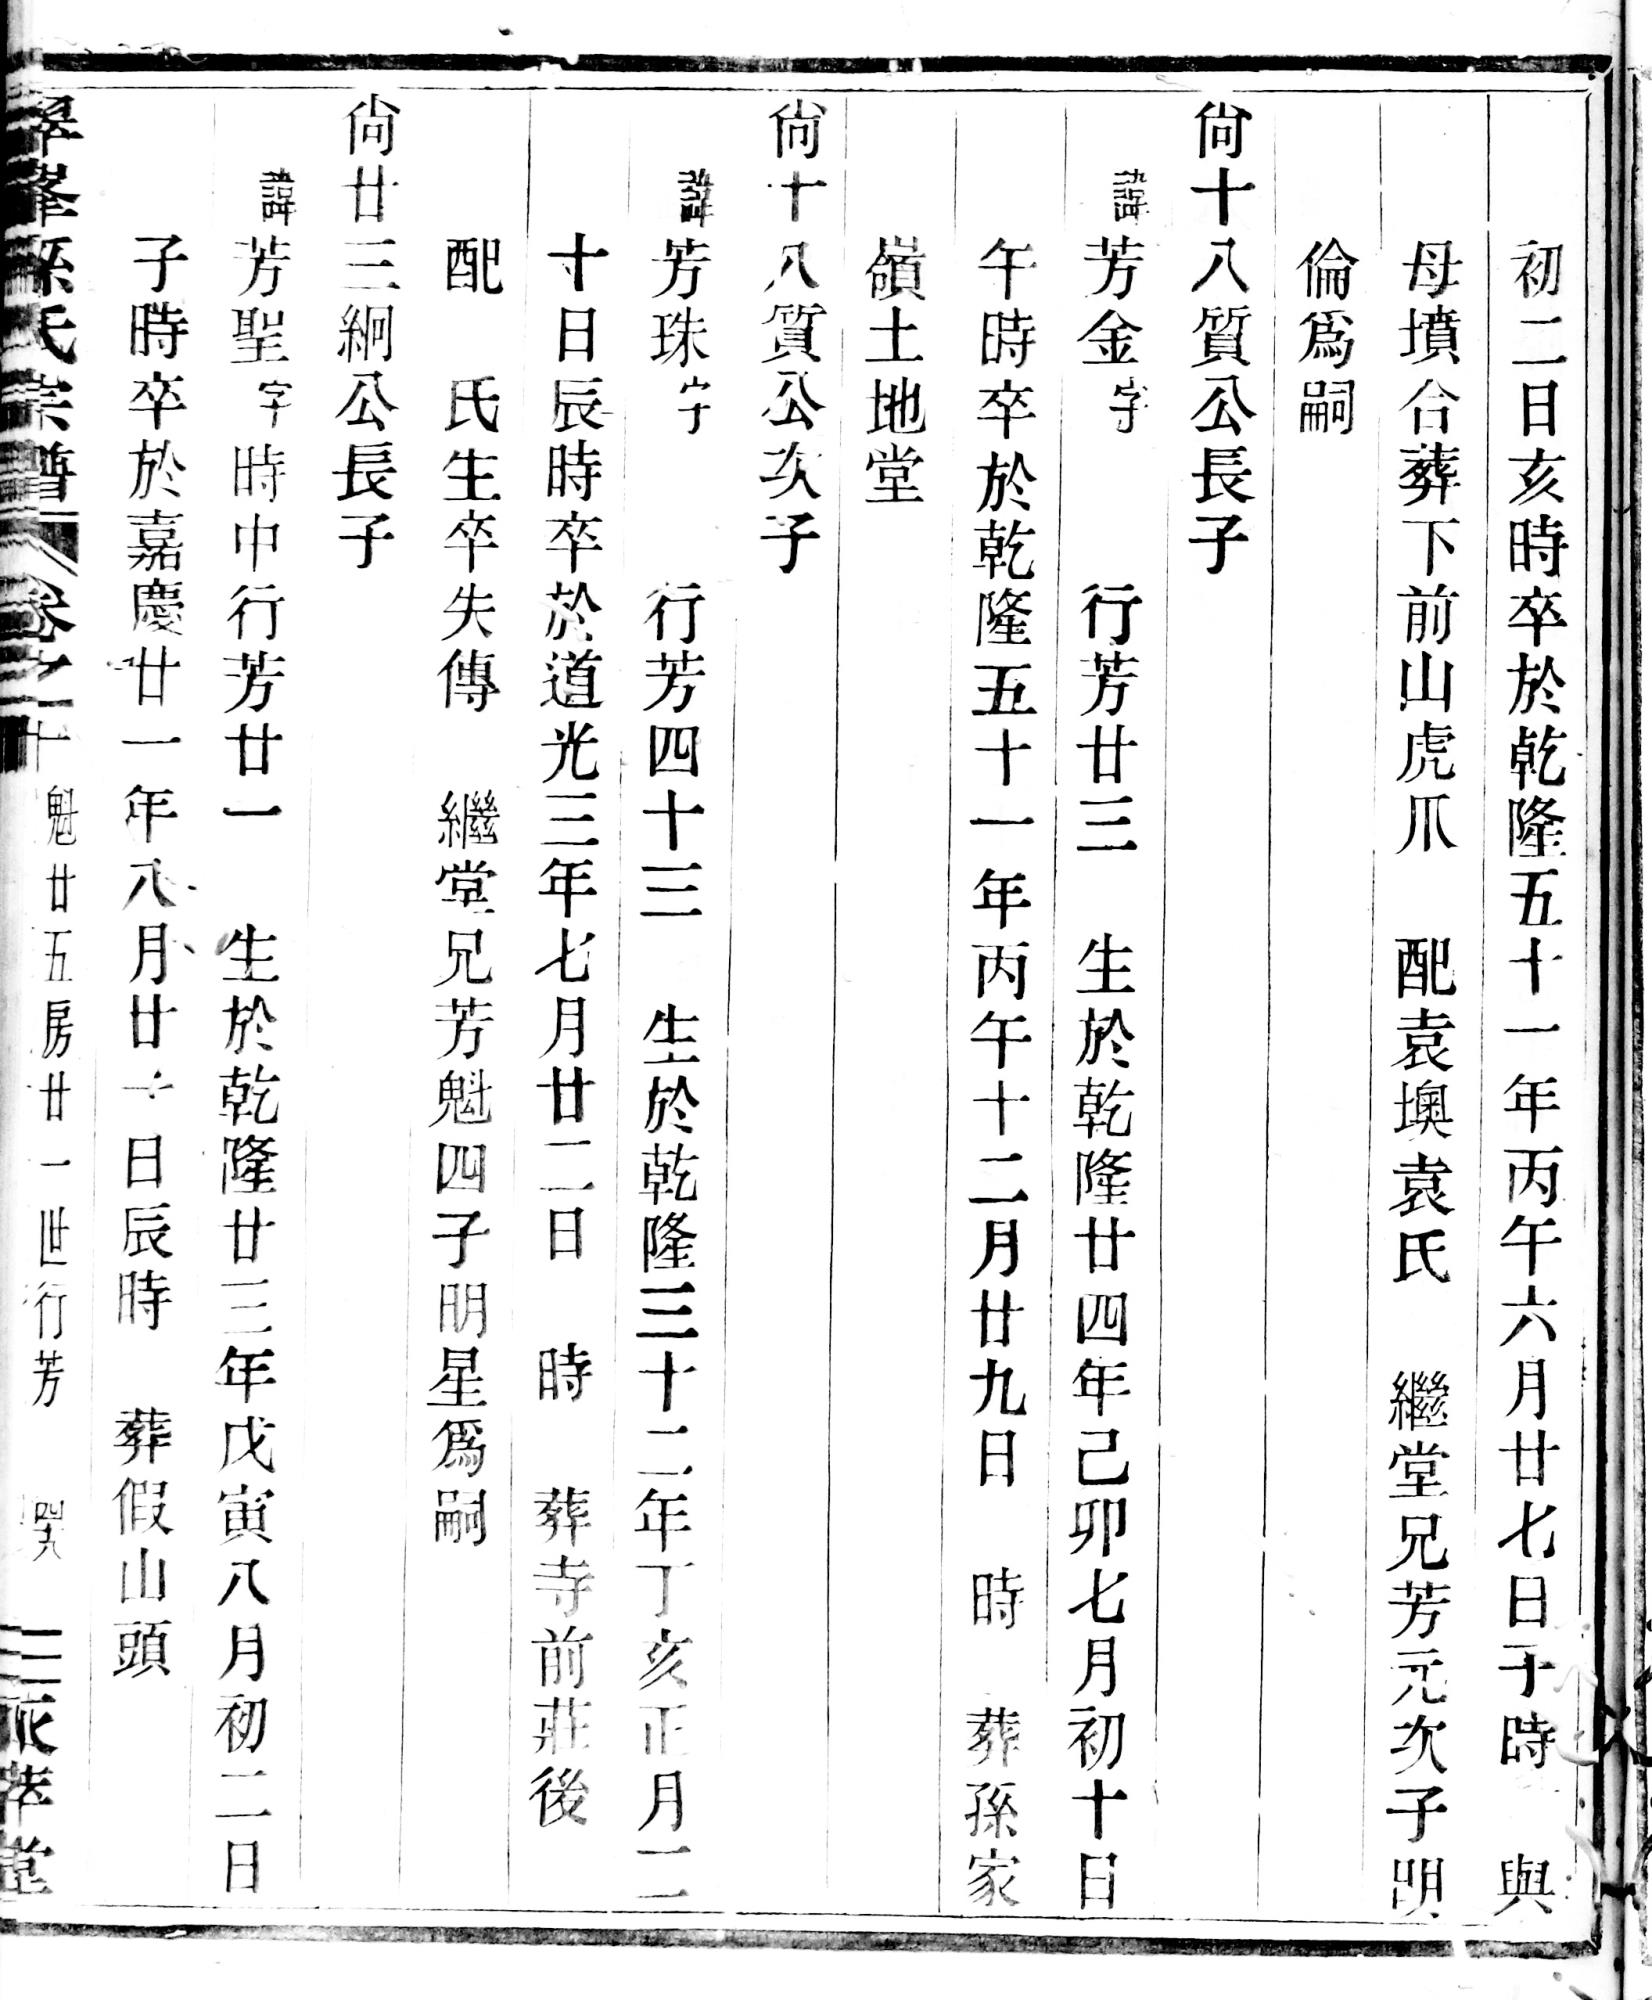 初二日亥時卒於乾隆五十一年丙午六月廿七日子時　與
母墳合葬下前山虎爪　配袁墺袁氏　繼堂兄芳元次子明
倫爲嗣
尙十八質公長子
諱芳金字　行芳廿三　生於乾隆廿四年己卯七月初十日
午時卒於乾隆五十一年丙午十二月廿九日　時　葬孫家
嶺土地堂
尙十八質公次子
諱芳珠字　行芳四十三　生於乾隆三十二年丁亥正月二
十日辰時卒於道光三年七月廿二日　時　葬寺前莊後
配　氏生卒失傳　繼堂兄芳魁四子明星爲嗣
尙廿三絅公長子
諱芳聖字時中行芳廿一　生於乾隆廿三年戊寅八月初二日
子時卒於嘉慶廿一年八月廿一日辰時　葬假山頭
翠峯孫氏宗譜　卷之十　魁廿五房廿一世行芳　萃堂